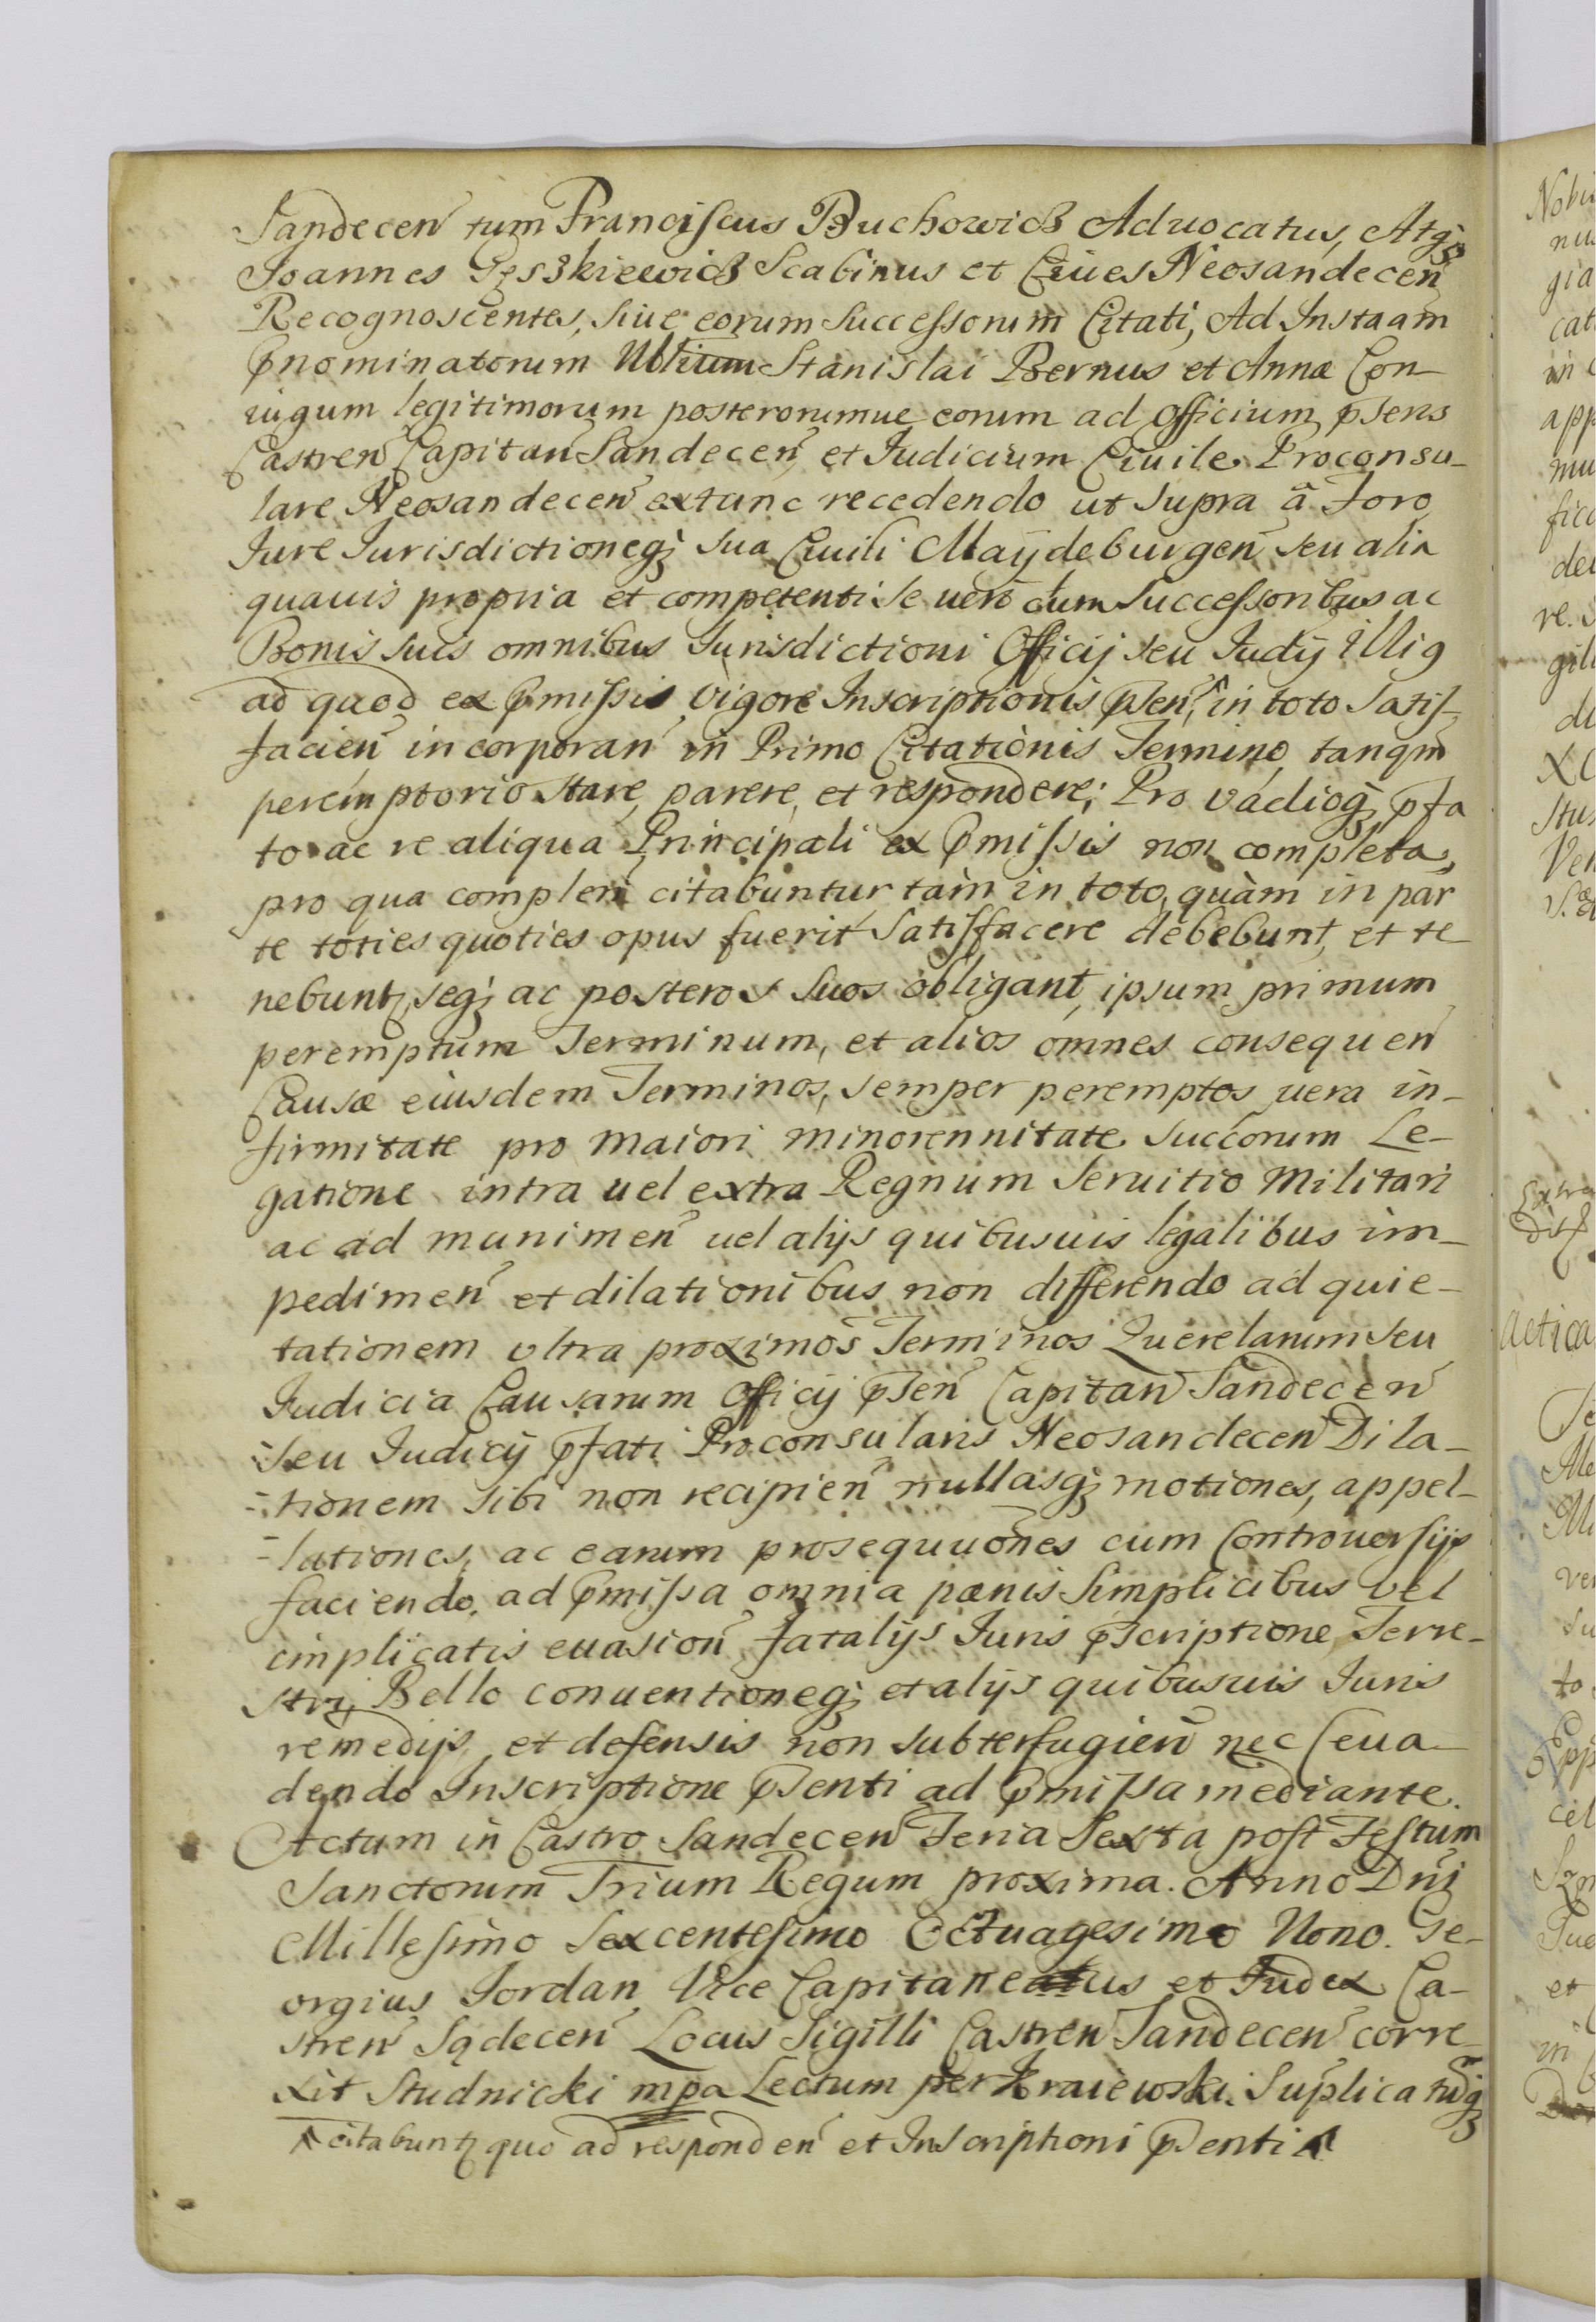 Sandecen tum Franciscus Buchowicz Aduocatus, Atq;
Joannes Gęszkiewicz Scabinus et Ciues Neosandecen
Recognoscentes, siue eorum Successorum Citati, Ad Instaam
p̃nominatorum Nblium Stanislai Bernus et Annæ Con-
iugum legitimorum posterorumue eorum ad officium p̃sens
Castren Capitan Sandecen, et Iudicium Ciuile Proconsu-
lare Neosandecen extunc recedendo ut supra â Foro
Iure Iurisdictioneq; sua Ciuili Maÿdeburgen seu alia
quauis propria et competenti se uero cum Successoribus ac
Bonis suis omnibus Iurisdictioni Officij seu Iudij illi9
ad quod ex p̃missis vigore Inscriptionis p̃sen, in toto satis-
facien incorporan in Primo Citationis Termino tanqm
peremptorio stare, parere, et respondere; Pro vadioq; p̃fa
to ac re aliqua Principali ex p̃missis non completa,
pro qua compleri citabuntur tàm in toto, quàm in par
te toties quoties opus fuerit satisfacere debebunt, et te
nebunt, seq; ac posteros suos obligant, ipsum primum
peremptum Terminum, et alios omnes consequen
Causæ eiusdem Terminos, semper peremptos uera in-
firmitate pro maiori minorennitate succorum Le-
gatione intra uel extra Regnum seruitio Militari
ac ad munimen uel alijs quibusuis legalibus im-
pedimen et dilationibus non differendo ad quie-
tationem vltra proximos Terminos Querelarum seu
Iudicia Causarum Officij p̃sen Capitan Sandecen
seu Iudicij p̃fati Proconsularis Neosandecen Dila-
-tionem sibi non recipien nullasq; motiones, appel-
-lationes, ac earum prosequuones cum Controuersijs
faciendo, ad p̃missa omnia pænis simplicibus vel
implicatis euasion fatalijs Iuris p̃scriptione, Terre-
stri, Bello conuentioneq; et alijs quibusuis Iuris
remedijs, et defensis non subterfugien nec eua-
dendo Inscriptione p̃senti ad p̃missa mediante.
Actum in Castro Sandecen Feria Sexta post Festum
Sanctorum Trium Regum proxima. Anno Dni
Millesimo Sexcentesimo Octuagesimo Nono. Ge-
orgius Jordan Vice Capitaneus et Iudex Ca-
stren Sądecen Locus Sigilli Castren Sandecen corre-
xit Studnicki mpa Lectum per Kraiewski. Suplicatuq;
citabunt quo ad responden et Inscriptioni p̃senti